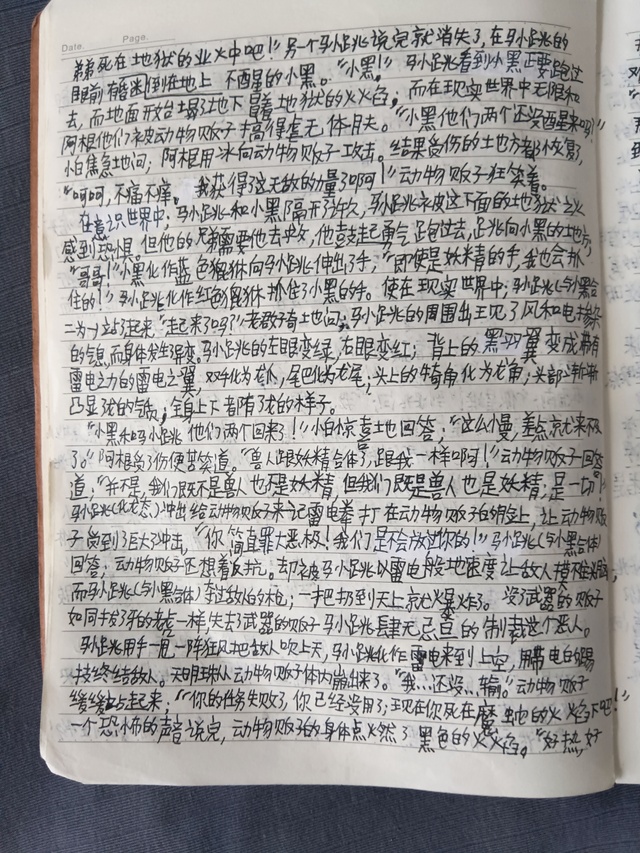 Date. Page.
弟弟死在地狱的业火中吧！"另一个马小跳说完就消失了，在马小跳的
眼前有昏迷倒在地上 不醒的小黑。"小黑！"马小跳看到小黑正要跑过
去，而地面开始塌了地下冒着地狱的火焰，而在现实世界中无限和
阿根他们被动物贩子搞得虚无体肤。"小黑他们两个还没醒来吗？"
小白焦急地问；阿根用冰向动物贩子攻击。结果受伤的土也方都恢复了，
"呵呵，不痛不痒。我获得了这无敌的力量了啊！"动物贩子狂笑着。
在意识世界中；马小跳和小黑隔开了许久，马小跳被这下面的地狱之火
感到恐惧。但他的兄弟需要他去救，他鼓起勇气跑过去，跳向小黑的地方，
"哥哥！"小黑化作蓝色貔貅向马小跳伸出了手，"即使是妖精的手，我也会抓
住的！"马小跳化作红色貔貅抓住了小黑的手。使在现实世界中；马小跳与小黑合
二为一站了起来。"起来了吗？"老君好奇土也问；马小跳的周围出现了风和电掺杂
的气息，而身体发生了异变。马小跳的左眼变绿，右眼变红；背上的黑羽翼变成带有
雷电之力的雷电之翼，双手化为龙爪，尾巴化为龙尾；头上的犄角化为龙角；头部渐渐
凸显龙的气息；全身上下都有了龙的样子。
"小黑和马小跳他们两个回来了！"小白惊喜土也回答；"这么小曼，差点就来不及
了。"阿根受了伤便苦笑道。"兽人跟妖精合体了，跟我一样啊！"动物贩子回答
道，"并不是，我们既不是兽人也不是妖精，但我们既是兽人也是妖精，是一切！"
马小跳(化龙态)冲出给动物贩子来一记雷电拳打在动物贩子的身上，让动物贩
子受到了巨大冲击，"你简直罪大恶极！我们是不会放过你的！"马小跳(与小黑合体)
回答；动物贩子还想着反抗。却被马小跳以雷电般地速度让敌人措不及防，
而马小跳(与小黑合体)夺过敌人的木仓，一把扔到天上就爆炸了。没了武器的贩子
如同拔了牙的老虎一样，失去了武器的贩子马小跳肆无忌惮的制裁这个恶人。
马小跳用手一甩一阵狂风把敌人吹上天，马小跳化作雷电来到上空，用带电的踢
技终结敌人。天明珠从动物贩子体内崩出来了。"我…还没…输。"动物贩子
缓缓站起来；"你的任务失败了，你已经没用了；现在你死在魔虫地的火焰下吧！"
一个恐怖的声音说完，动物贩子的身体点燃了黑色的火焰。"好热，好